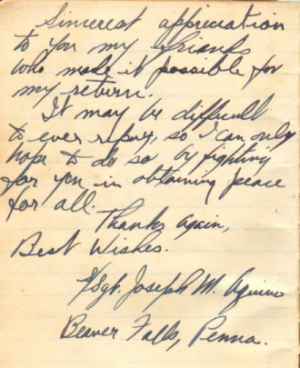 Sincerest appreciation
to you my friends
who made it possible for
my return.
It may be difficult
to ever repay, so I can only
hope to do so by fighting
for you in obtaining peace
for all.
Thanks again,
Best Wishes.
Sgt. Joseph M. Aquino
Beaver Falls, Penna.